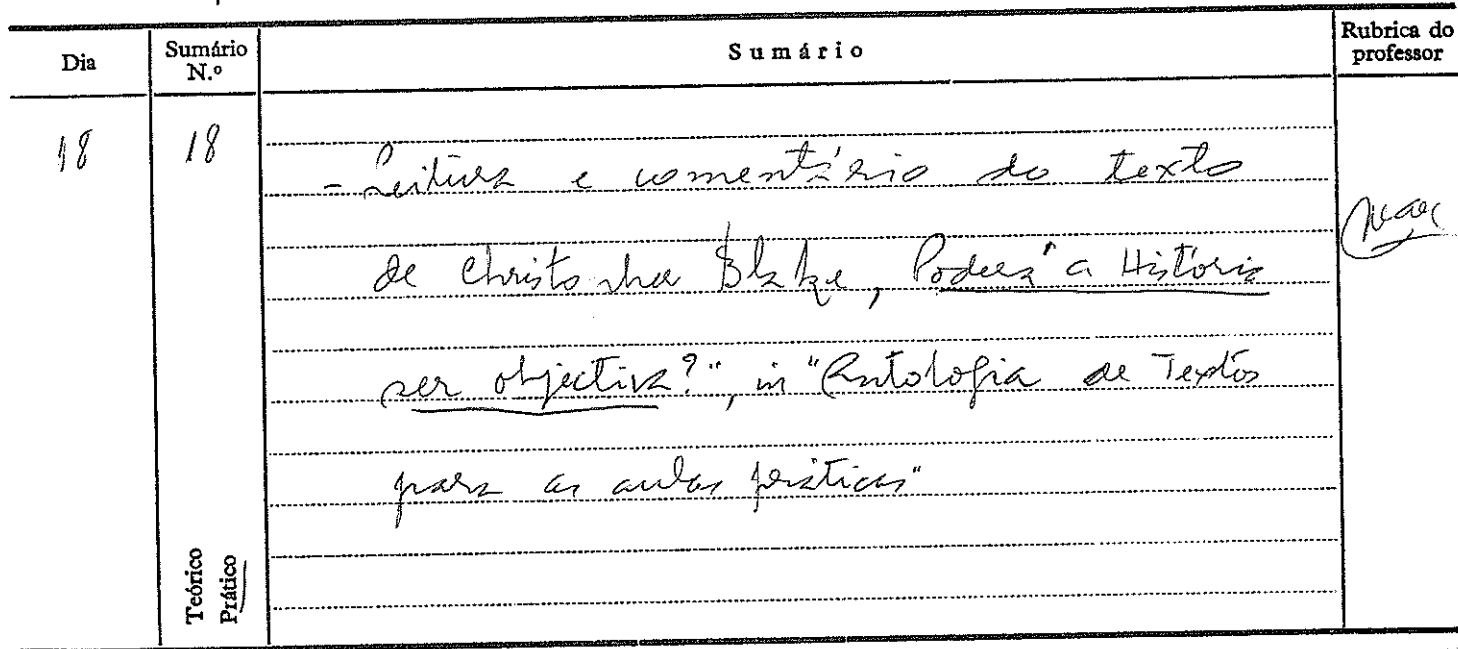 Dia
Sumário N.º
Sumário
Rubrica do professor
18
18
- Leitura e comentário do texto
de Christopher Blake, Poderá a História
ser objectiva?", in "Antologia de Textos
para as aulas práticas"
Teórico
Prático